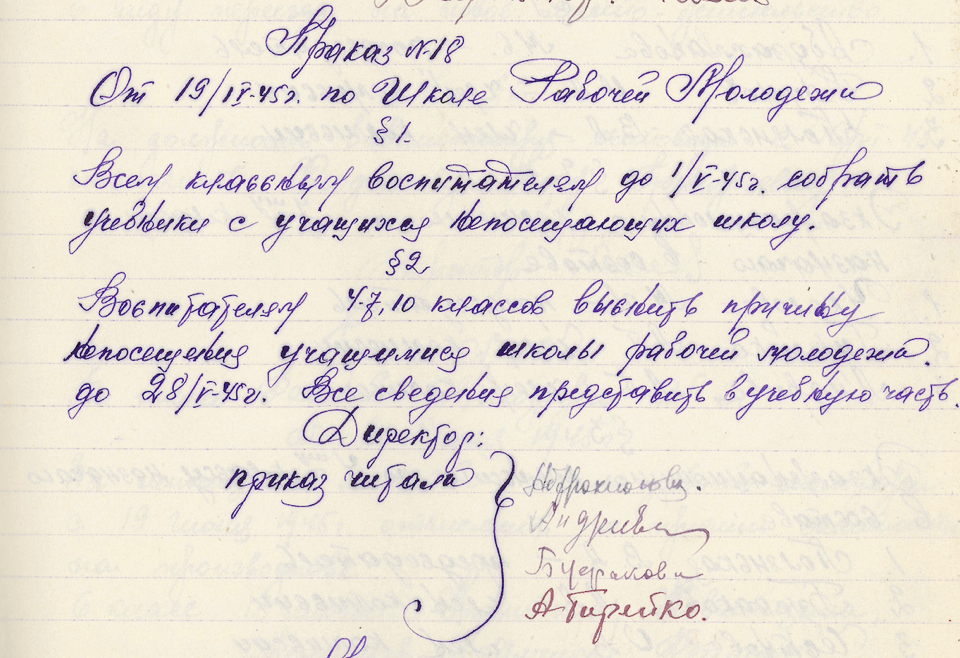 Приказ №18
От 19/IV-45г. по Школе Рабочей Молодежи
§1.
Всем классным воспитателям до 1/V-45г. собрать
учебники с учащихся непосещающих школу.
§2
Воспитателям 4-7, 10 классов выявить причину
непосещения учащимися школы рабочей молодежи
до 28/V-45г. Все сведения представить в учебную часть.
Директор:
приказ читали